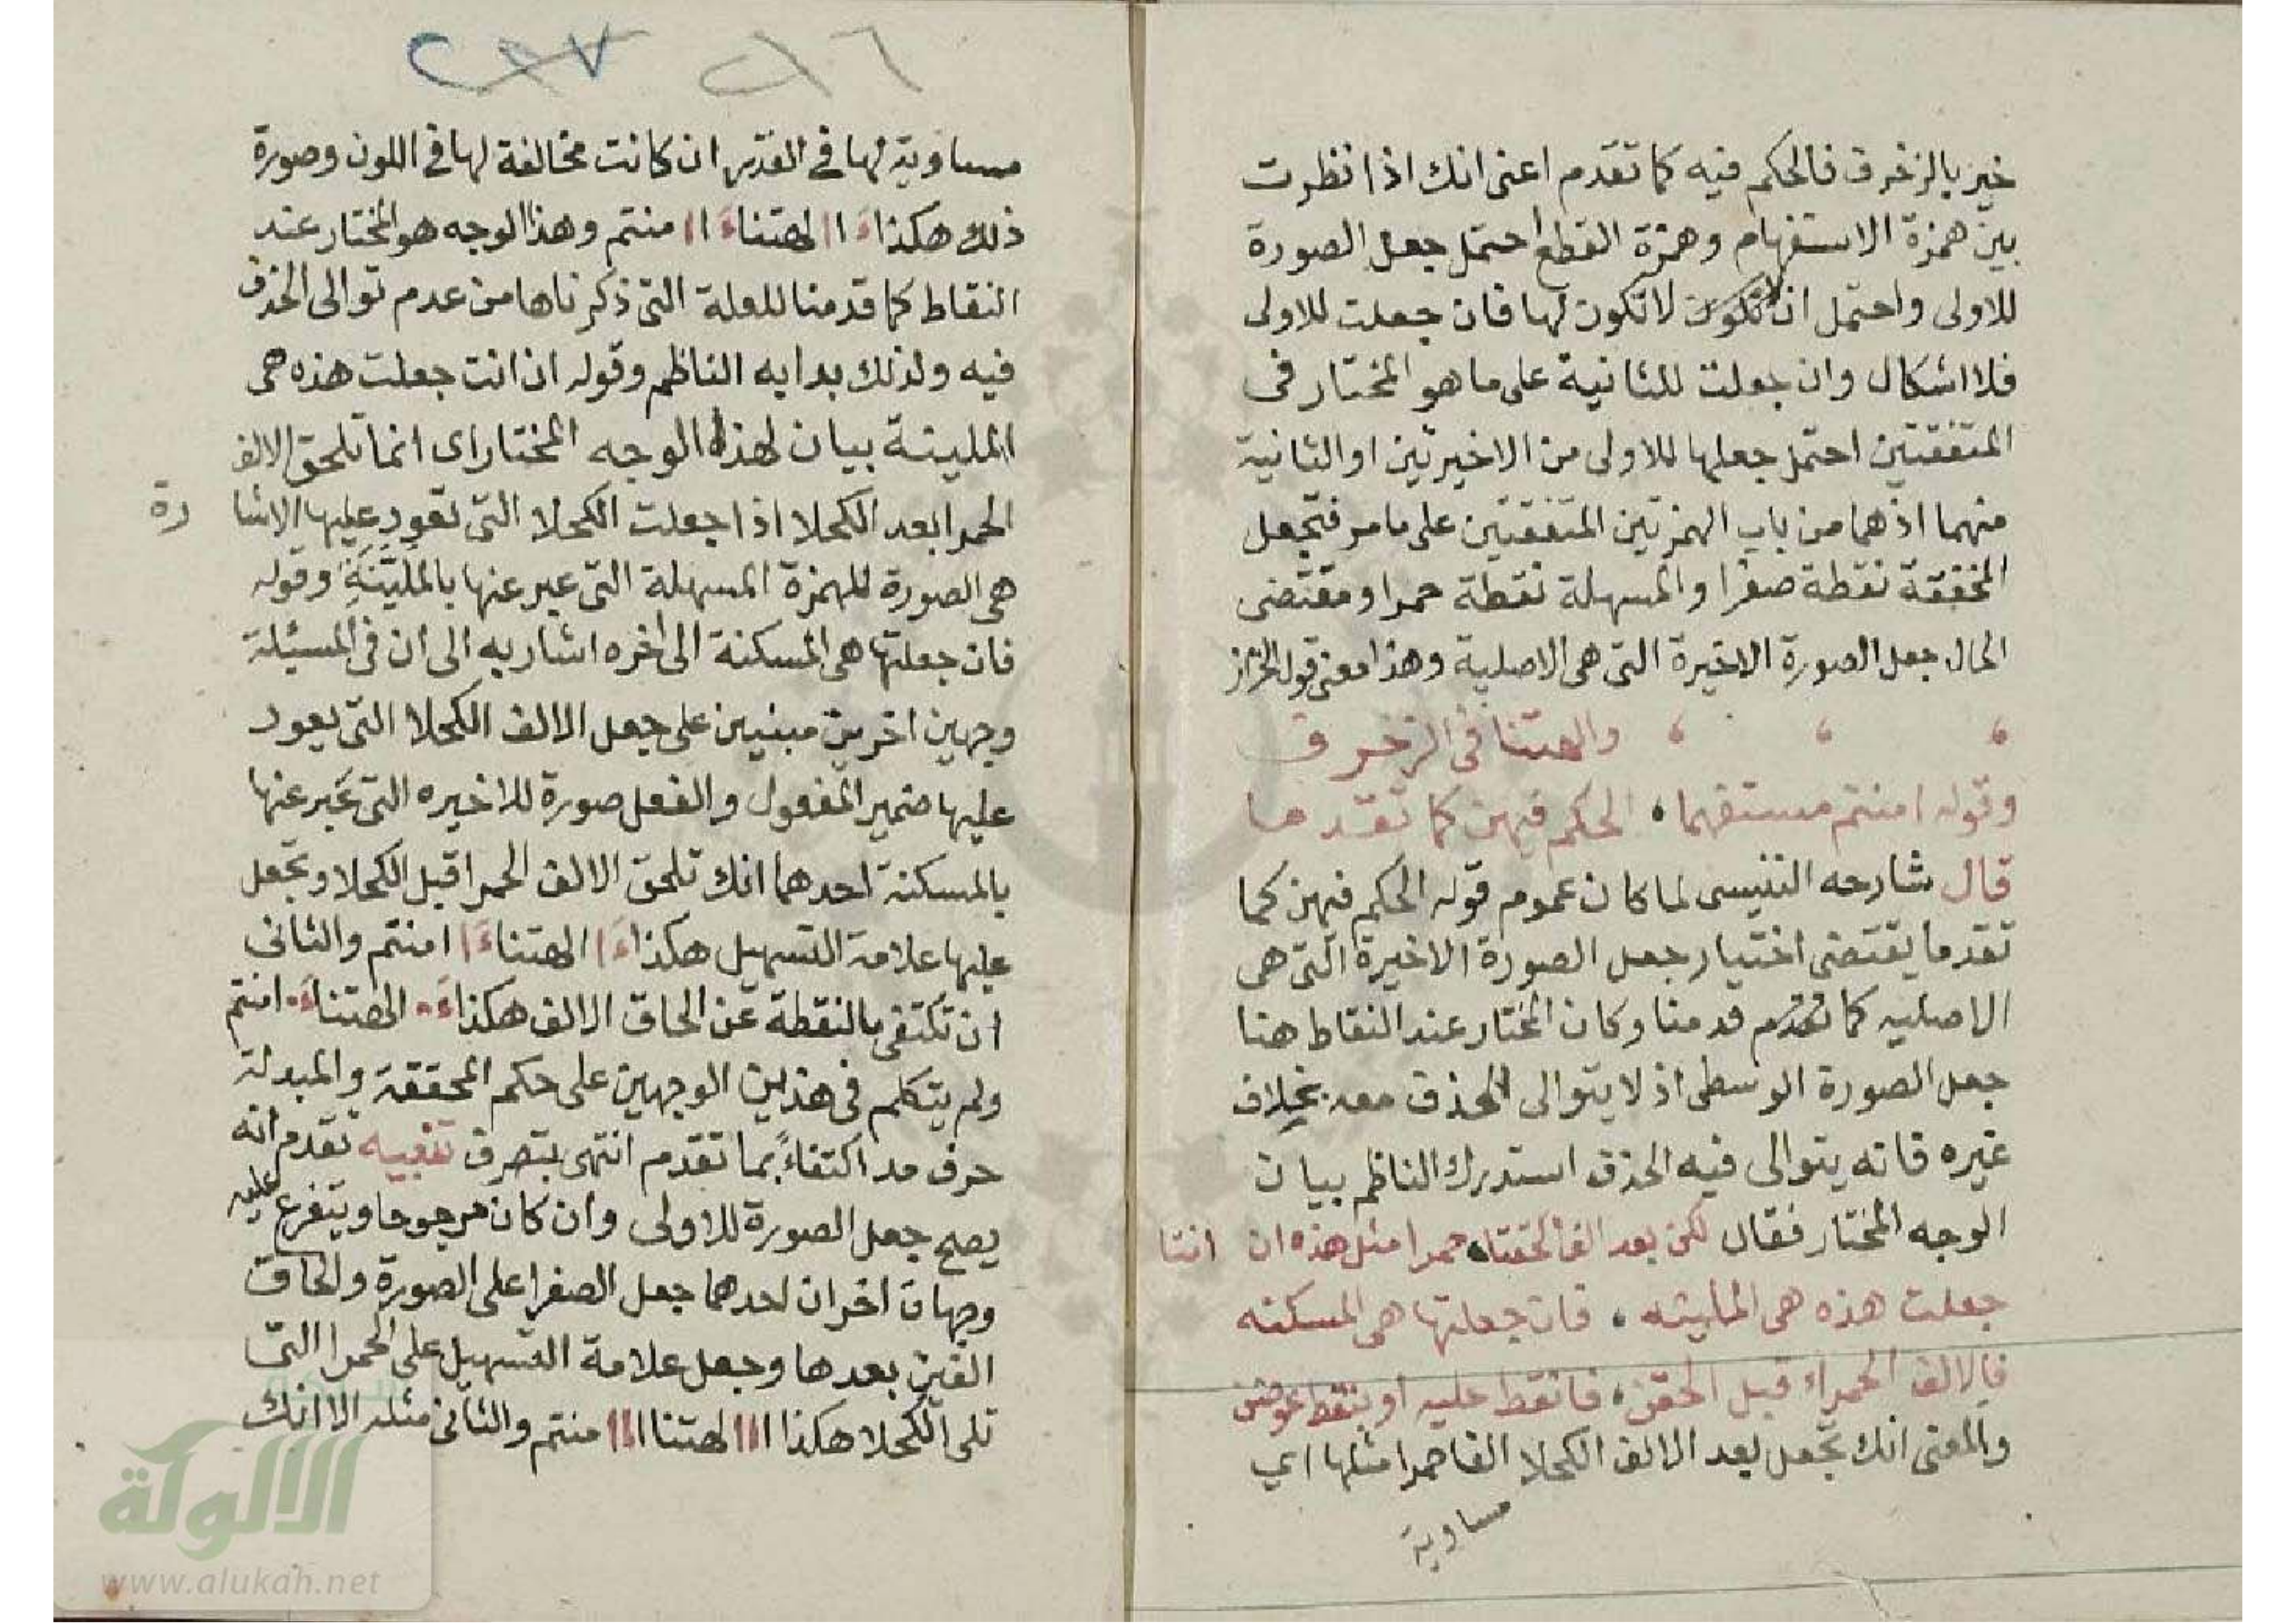 خير بالزخرف فالحكم فيه كما تقدم اعنى انك اذا نظرت
بين همزة الاستفهام وهمزة القطع احتمل جعل الصورة
للاولى واحتمل ان لا تكون لها فان جعلت للاولى
فلا اشكال وان جعلت للثانية على ما هو المختار فى
المتفقتين احتمل جعلها للاولى من الاخيرتين او الثانية
منهما اذ هما من باب الهمزتين المتفقتين على ما مر فتجعل
المخففة نقطة صفرا والمسهلة نقطة حمرا ومقتضى
الحال جعل الصورة الاخيرة التى هى الاصلية وهذا معنى قول الخراز
والهتنا فى الزخرف
وقوله امنتم مستفهما الحكم فيهن كما تقدما
قال شارحه التنيسى لما كان عموم قوله الحكم فيهن كما
تقدما يقتضى اختيار جعل الصورة الاخيرة التى هى
الاصليه كما قدمنا وكان المختار عند النقاط هنا
جعل الصورة الوسطى اذ لا يتوالى الحذف معه بخلاف
غيره فانه يتوالى فيه الحذف استدرك الناظم بيان
الوجه المختار فقال لكن بعد الفا الحقتا حمرا مثل هذه ان انتا
جعلت هذه هى المليّنه فان جعلتها هى المسكنه
فالالف الحمراء قبل الحقن فانقط عليه او بنقط عوضن
والمعنى انك تجعل بعد الالف الكحلا الفا حمرا مثلها اى
مساوية
٢١٦
٢٣٧
مساوية لها فى القدر ان كانت مخالفة لها فى اللون وصورة
ذلك هكذا ءاا لهتنا ءاا منتم وهذا الوجه هو المختار عند
النقاط كما قدمنا للعلة التى ذكرناها من عدم توالى الحذف
فيه ولذلك بدا به الناظم وقوله ان انت جعلت هذه هى
المليّنة بيان لهذا الوجه المختار اى انما تلحق الالف
الحمرا بعد الكحلا اذا جعلت الكحلا التى تعود عليها الاشا رة
هى الصورة للهمزة المسهلة التى عبر عنها بالمليَّنَةِ وقوله
فان جعلتها هى المسكنة الى اخره اشار به الى ان فى المسئلة
وجهين اخرين مبنيين على جعل الالف الكحلا التى يعود
عليها ضمير المفعول والفعل صورة للاخيره التى عبر عنها
بالمسكنة احدهما انك تلحق الالف الحمرا قبل الكحلا وتجعل
عليها علامة التسهيل هكذا ءَا الهتنا ءَا امنتم والثانى
ان تكتفى بالنقطة عن الحاق الالف هكذا ءَ• الهتنا ءَ• امنتم
ولم يتكلم فى هذين الوجهين على حكم المحققة والمبدلة
حرف مد اكتفاءً بما تقدم انتهى بتصرف تنبيه تقدم انه
يصح جعل الصورة للاولى وان كان مرجوحا ويتفرع عليه
وجهان اخران احدهما جعل الصفرا على الصورة والحاق
الفين بعدها وجعل علامة التسهيل على الحمرا التى
تلى الكحلا هكذا ااا لهتنا ااا منتم والثانى مثله الا انك
الالوكة
www.alukah.net